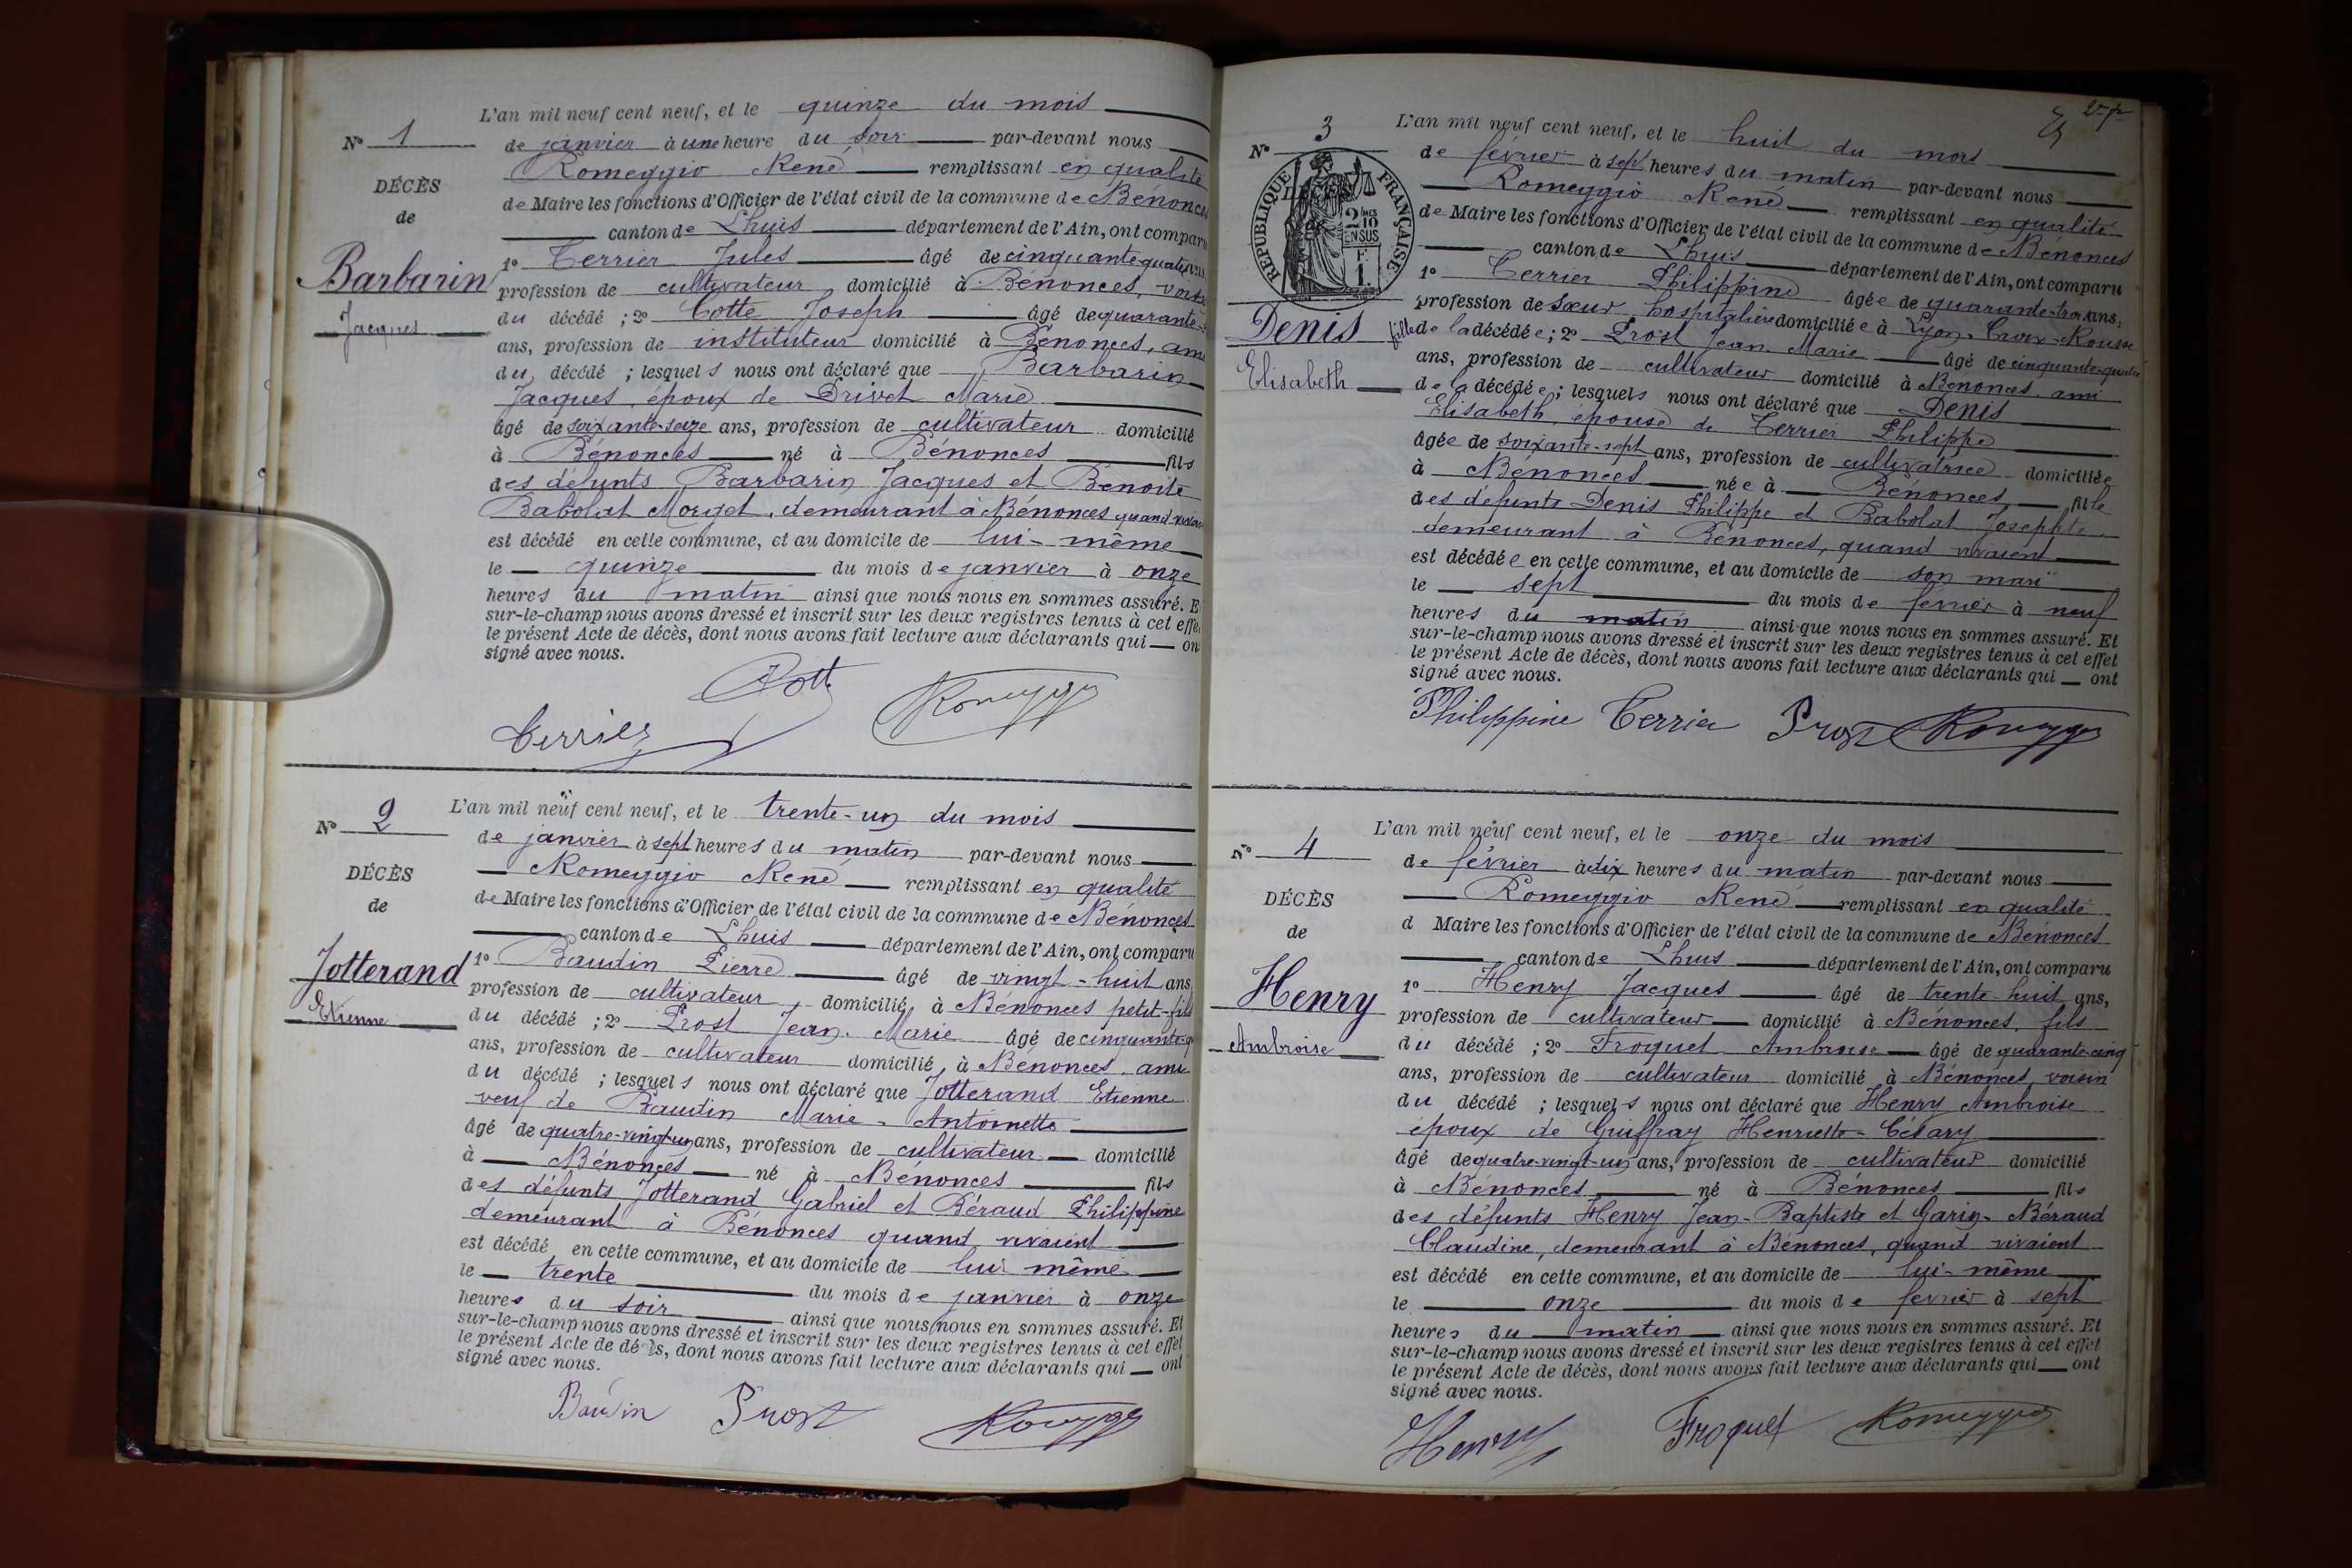 L'an mil neuf cent neuf, et le quinze du mois
N° 1
de janvier à une heure du soir par-devant nous
Romeggio René remplissant en qualité
DÉCÈS
de Maire les fonctions d'Officier de l'état civil de la commune de Bénonces
de
canton de Lhuis département de l'Ain, ont comparu
Barbarin
1° Terrier Jules âgé de cinquante-quatre ans,
profession de cultivateur domicilié à Bénonces, voisin
Jacques
du décédé ; 2° Cotte Joseph âgé de quarante-
ans, profession de instituteur domicilié à Bénonces, ami
du décédé ; lesquels nous ont déclaré que Barbarin
Jacques, époux de Drivet Marie
âgé de soixante-seize ans, profession de cultivateur domicilié
à Bénonces né à Bénonces fils
des défunts Barbarin Jacques et Benoite
Babolat Morget, demeurant à Bénonces quand
est décédé en cette commune, et au domicile de lui-même
le quinze du mois de janvier à onze
heures du matin ainsi que nous nous en sommes assuré. E
sur-le-champ nous avons dressé et inscrit sur les deux registres tenus à cet effe
le présent Acte de décès, dont nous avons fait lecture aux déclarants qui on
signé avec nous.
Cotte
Romeggio
Terrier
L'an mil neuf cent neuf, et le trente-un du mois
N° 2
de janvier à sept heures du matin par-devant nous
Romeggio René remplissant en qualité
DÉCÈS
de Maire les fonctions d'Officier de l'état civil de la commune de Bénonces
de
canton de Lhuis département de l'Ain, ont comparu
Jotterand
1° Baudin Pierre âgé de vingt-huit ans,
profession de cultivateur, domicilié à Bénonces petit-fils
Etienne
du décédé ; 2° Prost Jean-Marie âgé de cinquante-q
ans, profession de cultivateur domicilié à Bénonces, ami
du décédé ; lesquels nous ont déclaré que Jotterand Etienne
veuf de Baudin Marie-Antoinette
âgé de quatre-vingt-un ans, profession de cultivateur domicilié
à Bénonces né à Bénonces fils
des défunts Jotterand Gabriel et Béraud Philippine
demeurant à Bénonces quand vivaient
est décédé en cette commune, et au domicile de lui même
le trente du mois de janvier à onze
heures du soir ainsi que nous nous en sommes assuré. Et
sur-le-champ nous avons dressé et inscrit sur les deux registres tenus à cet effet
le présent Acte de décès, dont nous avons fait lecture aux déclarants qui ont
signé avec nous.
Baudin Prost Romeggio
L'an mil neuf cent neuf, et le huit du mois
N° 3
de février à sept heures du matin par-devant nous
Romeggio René remplissant en qualité
DÉCÈS
RÉPUBLIQUE FRANÇAISE
2/10 EN SUS
1 F
de Maire les fonctions d'Officier de l'état civil de la commune de Bénonces
canton de Lhuis département de l'Ain, ont comparu
1° Terrier Philippine âgée de quarante-trois ans,
profession de sœur hospitalière domiciliée à Lyon-Croix-Rousse
Denis
fille de la décédée ; 2° Prost Jean-Marie âgé de cinquante-quatre
Elisabeth
ans, profession de cultivateur domicilié à Bénonces, ami
de la décédée ; lesquels nous ont déclaré que Denis
Elisabeth, épouse de Terrier Philippe
âgée de soixante-sept ans, profession de cultivatrice domiciliée
à Bénonces née à Bénonces, fille
des défunts Denis Philippe et Babolat Josephte
demeurant à Bénonces, quand vivaient
est décédée en cette commune, et au domicile de son mari
le sept du mois de février à neuf
heures du matin ainsi que nous nous en sommes assuré. Et
sur-le-champ nous avons dressé et inscrit sur les deux registres tenus à cet effet
le présent Acte de décès, dont nous avons fait lecture aux déclarants qui ont
signé avec nous.
Philippine Terrier Prost Romeggio
L'an mil neuf cent neuf, et le onze du mois
N° 4
de février à dix heures du matin par-devant nous
Romeggio René remplissant en qualité
DÉCÈS
d Maire les fonctions d'Officier de l'état civil de la commune de Bénonces
de
canton de Lhuis département de l'Ain, ont comparu
Henry
1° Henry Jacques âgé de trente-huit ans,
profession de cultivateur domicilié à Bénonces, fils
Ambroise
du décédé ; 2° Froquet Ambroise âgé de quarante-cinq
ans, profession de cultivateur domicilié à Bénonces, voisin
du décédé ; lesquels nous ont déclaré que Henry Ambroise
époux de Guiffray Henriette-Césary
âgé de quatre-vingt-un ans, profession de cultivateur domicilié
à Bénonces né à Bénonces fils
des défunts Henry Jean-Baptiste et Garin-Béraud
Claudine, demeurant à Bénonces, quand vivaient
est décédé en cette commune, et au domicile de lui-même
le onze du mois de février à sept
heures du matin ainsi que nous nous en sommes assuré. Et
sur-le-champ nous avons dressé et inscrit sur les deux registres tenus à cet effet
le présent Acte de décès, dont nous avons fait lecture aux déclarants qui ont
signé avec nous.
Henry Froquet Romeggio